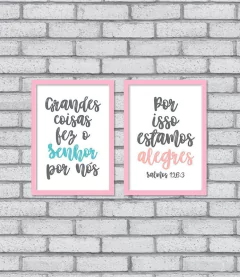 Grandes
coisas
fez o
Senhor
por nós
Por
isso
estamos
alegres
Salmos 126:3